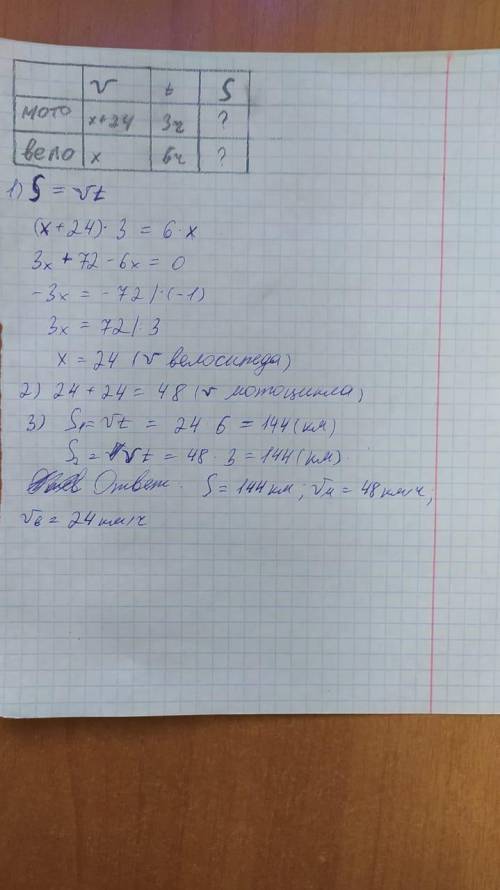 v t S
мото x+24 3ч ?
вело x 6ч ?
1) S = vt
(x+24)·3 = 6·x
3x + 72 - 6x = 0
-3x = -72 |·(-1)
3x = 72 |:3
x = 24 (v велосипеда)
2) 24 + 24 = 48 (v мотоцикла)
3) S₁ = vt = 24 · 6 = 144 (км)
S₂ = vt = 48 · 3 = 144 (км)
Ответ: S = 144 км; vм = 48 км/ч;
vв = 24 км/ч